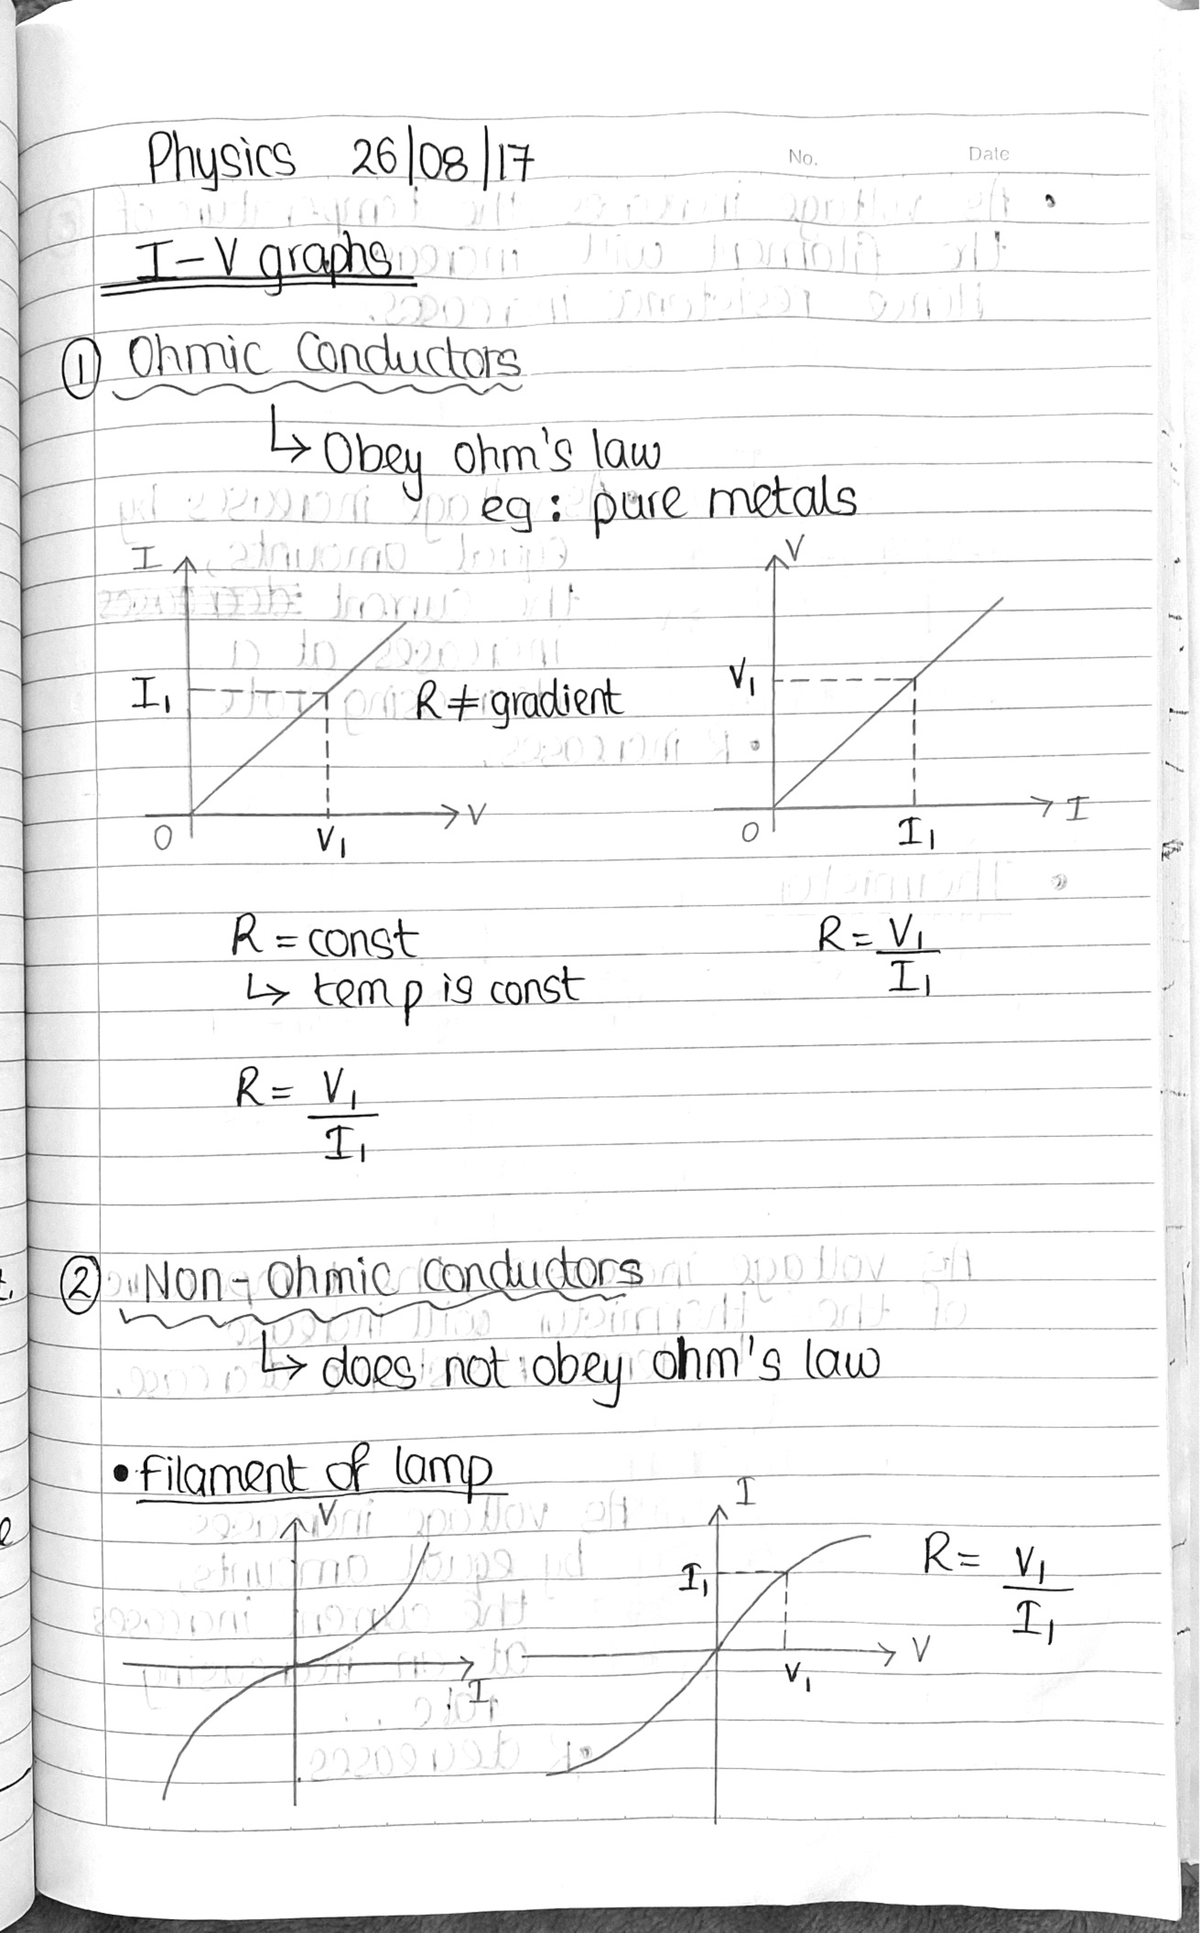 Physics 26/08/17
No. Date
I-V graphs
① Ohmic Conductors
↳ Obey ohm's law
eg : pure metals
I
V
I₁
R ≠ gradient
V₁
O V₁ V
O I₁ I
R = const
↳ temp is const
R = V₁/I₁
R = V₁/I₁
② Non-Ohmic conductors
↳ does not obey ohm's law
• filament of lamp
V
I
I
I₁
V₁
V
R = V₁/I₁